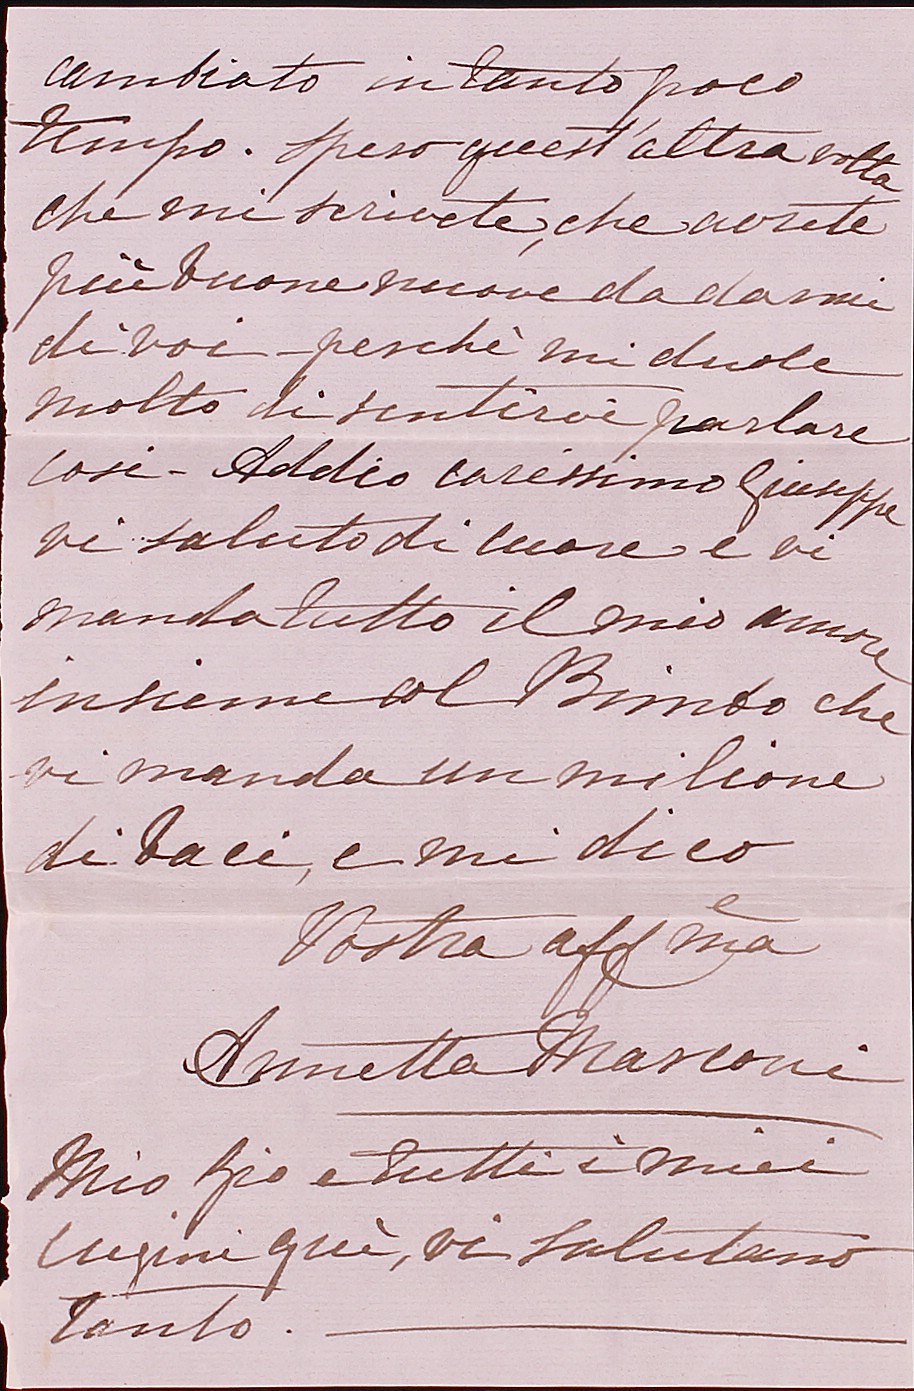 cambiato in tanto poco
tempo. Spero quest'altra volta
che mi scrivete, che avrete
più buone nuove da darmi
di voi - perchè mi duole
molto di sentirvi parlare
cosi - Addio carissimo Giuseppe
vi saluto di cuore e vi
manda tutto il mio amore
insieme col Bimbo che
vi manda un milione
di baci, e mi dico
Vostra affma
Annetta Marconi
Mio Zio e tutti i miei
cugini què, vi salutano
tanto.